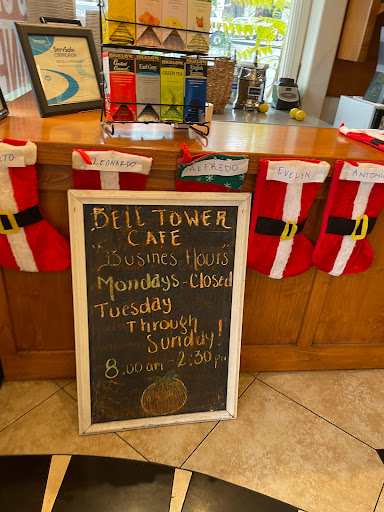 ServSafe
CERTIFICATION
GREEN TEA
LTO
LEONARDO
ALFREDO
EVELYN
ANTONI
BELL TOWER
CAFE
"Busines Hours"
Mondays - Closed
Tuesday
Through
Sunday!
8:00 am - 2:30 pm